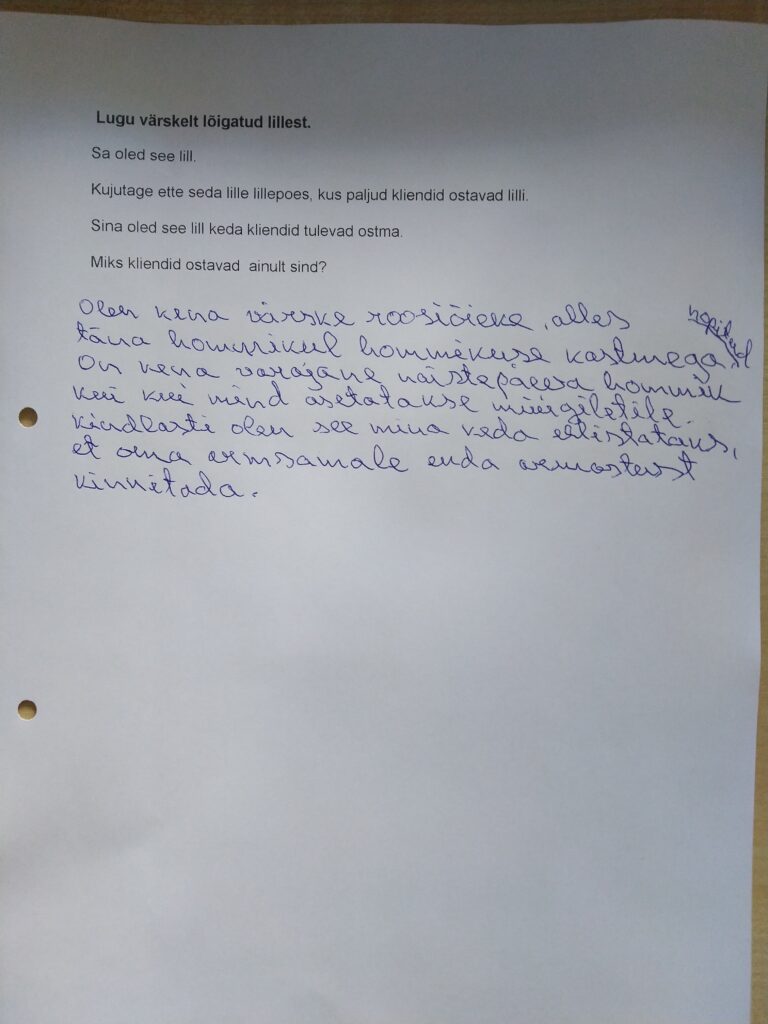 Lugu värskelt lõigatud lillest.
Sa oled see lill.
Kujutage ette seda lille lillepoes, kus paljud kliendid ostavad lilli.
Sina oled see lill keda kliendid tulevad ostma.
Miks kliendid ostavad ainult sind?
Olen kena värske roosiõieke, alles
täna hommikul hommikuse kastmega nopitud
On kena varajane naistepäeva hommik
kui kui mind asetatakse müügiletile.
Kindlasti olen see mina keda eelistataks,
et oma armsamale enda armastust
kinnitada.